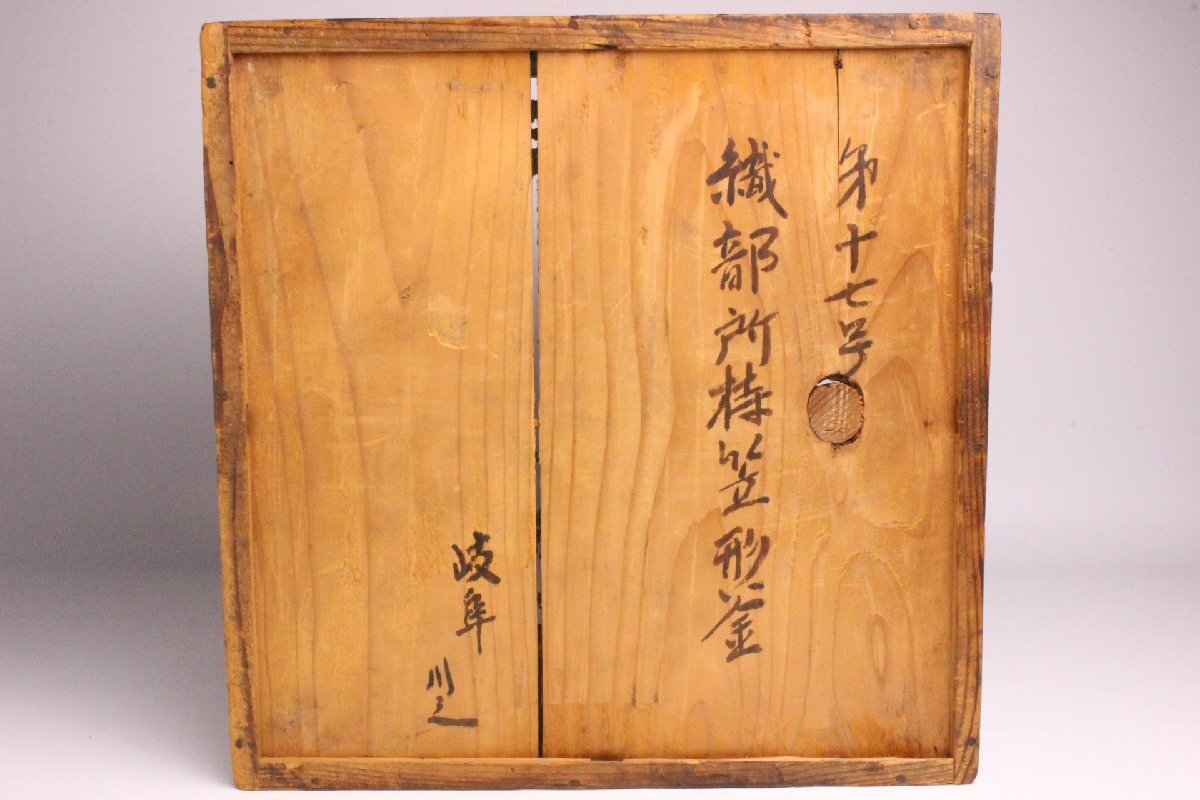 第十七号
織部所持笠形釜
岐阜
川之